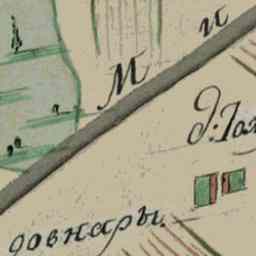 М и
д: Гол
довнары.